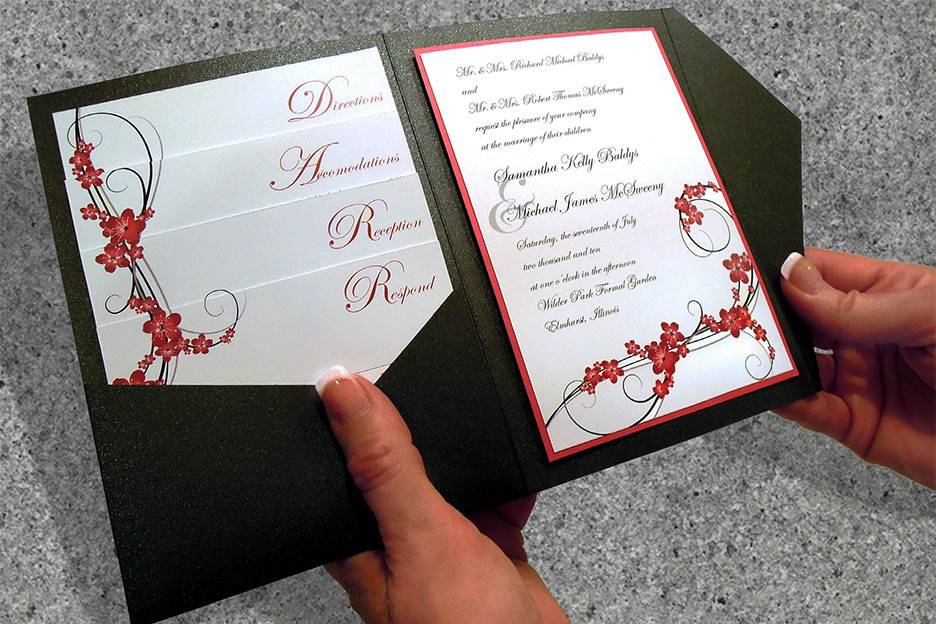 Directions
Accomodations
Reception
Respond
Mr. & Mrs. Richard Michael Baldys
and
Mr. & Mrs. Robert Thomas McSweeny
request the pleasure of your company
at the marriage of their children
Samantha Kelly Baldys
&
Michael James McSweeny
Saturday, the seventeenth of July
two thousand and ten
at one o'clock in the afternoon
Wilder Park Formal Garden
Elmhurst, Illinois